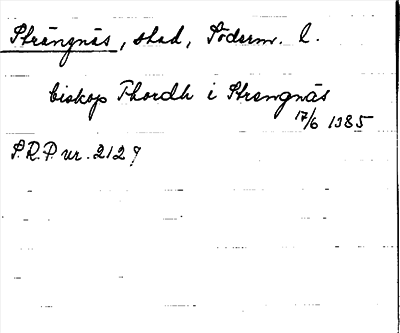 Strängnäs, stad, Söderm. l.
biskop Thordh i Strengnäs
17/6 1385
S.R.P. nr. 2127